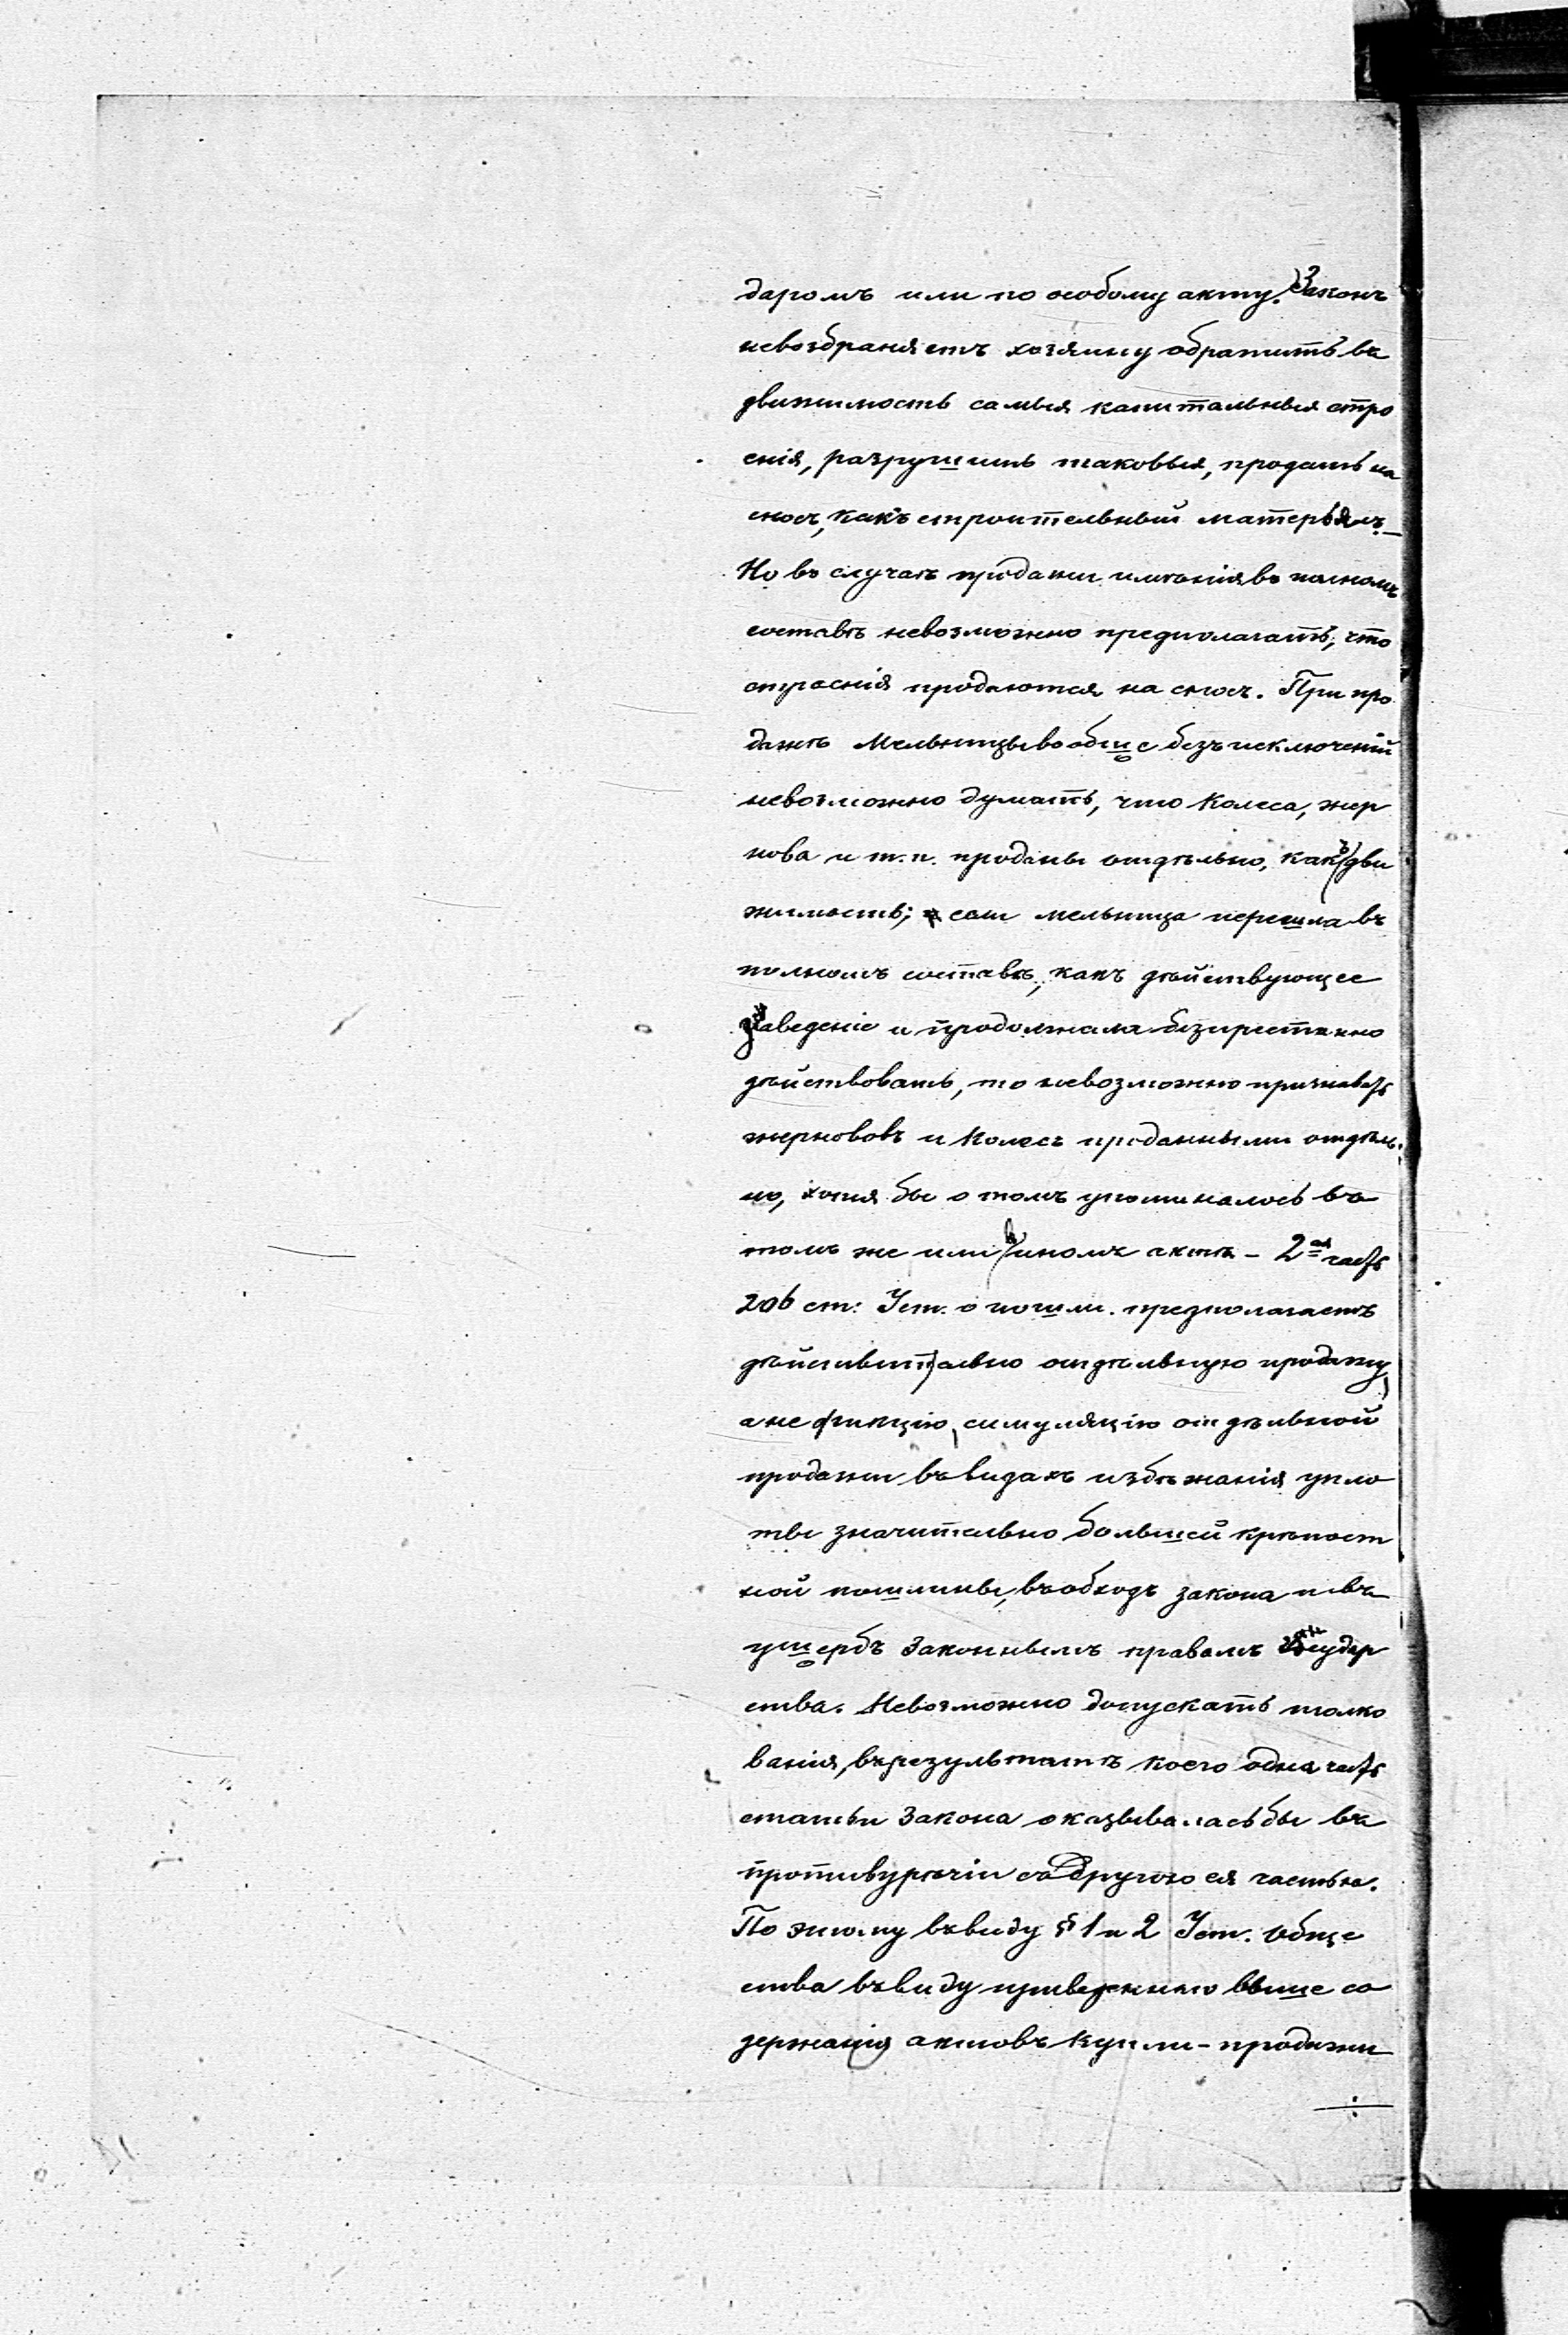 даромъ или по особому акту. Законъ
невозбраняетъ хозяину обратить въ
движимость самыя капитальныя стро
енія, разрушить таковыя, продать на
сносъ, какъ строительный матерьялъ.
Но въ случаѣ продажи имѣнія въ полномъ
составѣ невозможно предполагать, что
строенія продаются на сносъ. При про
дажѣ Мельницы вообще безъ исключеній
невозможно думать, что колеса, жер
нова и т.п. проданы отдѣльно, какъ дви
жимость; если мельница перешла въ
полномъ составѣ, какъ дѣйствующее
заведеніе и продолжала безпрестанно
дѣйствовать, то невозможно признавать
жернововъ и колесъ проданными отдѣль
но, хотя бы о томъ упоминалось въ
томъ же или въ иномъ актѣ – 2ая часть
206 ст: Уст. о пошл. предполагаетъ
дѣйствительно отдѣльную продажу,
а не фикцію, симуляцію отдѣльной
продажи въ видахъ избѣжанія упла
ты значительно большей крѣпост
ной пошлины, въ обходъ закона и въ
ущербъ законнымъ правамъ Государ
ства. Невозможно допускать толко
ванія, въ результатѣ коего одна часть
статьи Закона оказывалась бы въ
противурѣчіи съ другою ея частью.
По этому въ виду § 1 и 2 Уст. Обще
ства въ виду приведеннаго выше со
держанія актовъ купли-продажи